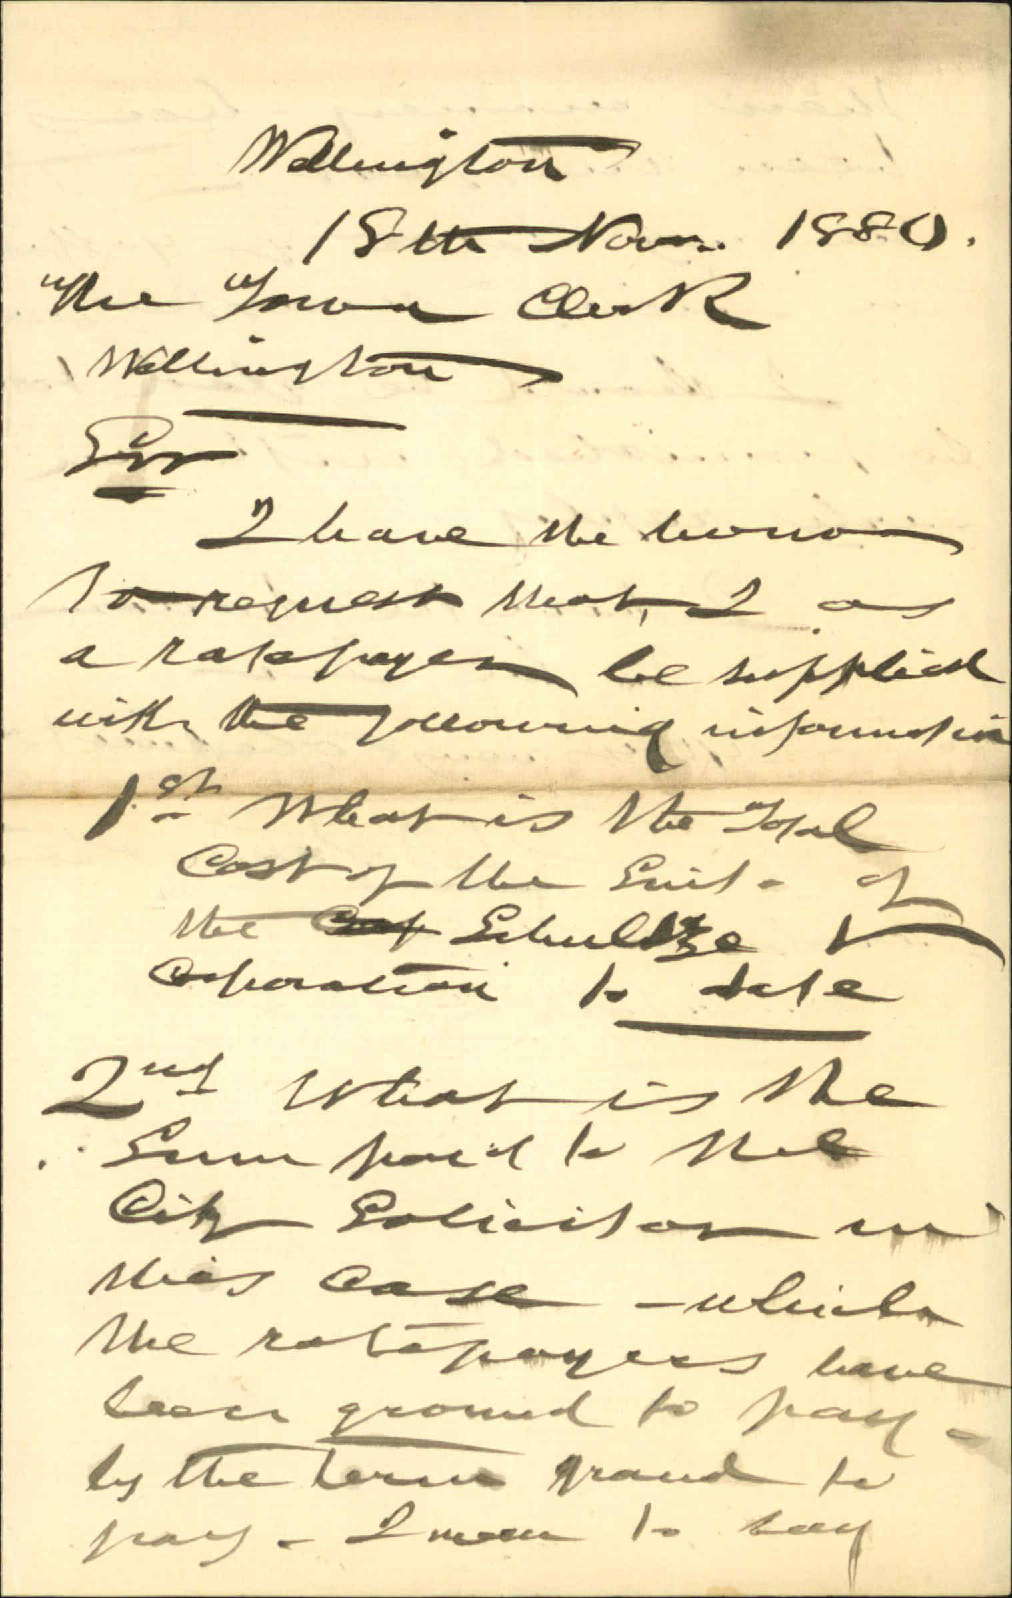 Wellington
18th Novr. 1880.
The Town Clerk
Wellington
Sir
I have the honor
to request that, I as
a ratepayer be supplied
with the following information
1st What is the Total
Cost of the Suit - of
the Schultze v
Corporation to date
2nd What is the
Sum paid to the
City Solicitor in
this case - which
the ratepayers have
been ground to pay -
by the term ground to
pay - I mean to say